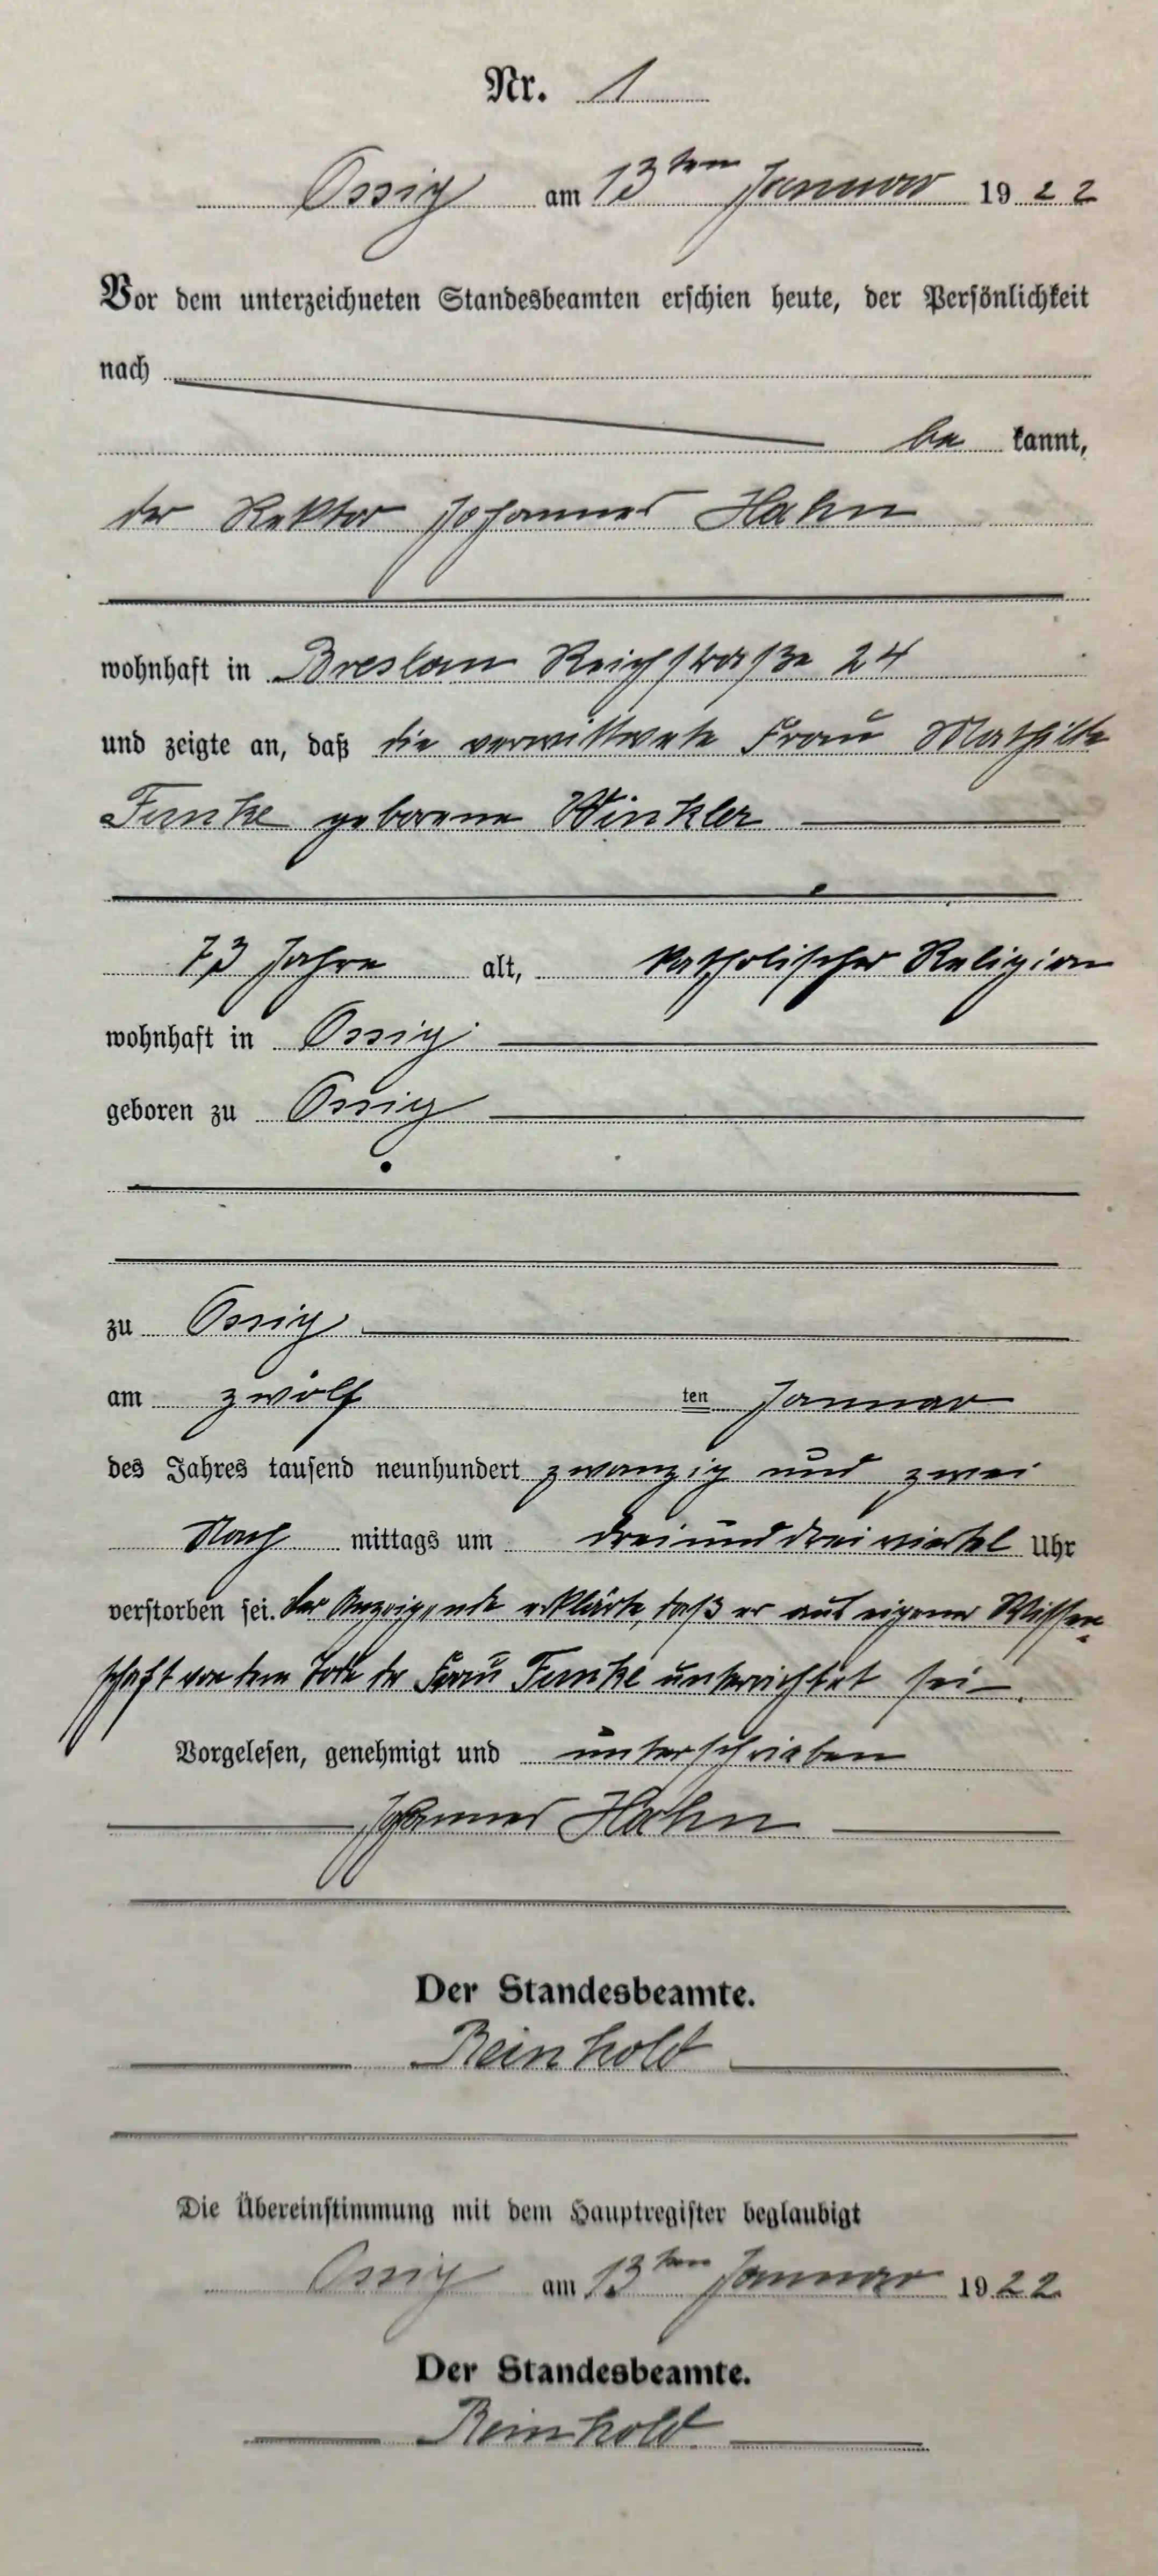 Nr. 1
Ossig am 13ten Januar 1922
Vor dem unterzeichneten Standesbeamten erschien heute, der Persönlichkeit
nach
be kannt,
der Rektor Johannes Hahn
wohnhaft in Breslau Reichstraße 24
und zeigte an, daß die verwittwete Frau Mathilde
Funke geborene Winkler
73 Jahre alt, katholischer Religion
wohnhaft in Ossig
geboren zu Ossig
zu Ossig
am zwölf ten Januar
des Jahres tausend neunhundert zwanzig und zwei
Nach mittags um drei und drei viertel Uhr
verstorben sei. Der Anzeigende erklärte, daß er aus eigener Wissen-
schaft von dem Tode der Frau Funke unterrichtet sei.
Vorgelesen, genehmigt und unterschrieben
Johannes Hahn
Der Standesbeamte.
Reinhold
Die Übereinstimmung mit dem Hauptregister beglaubigt
Ossig am 13ten Januar 1922
Der Standesbeamte.
Reinhold